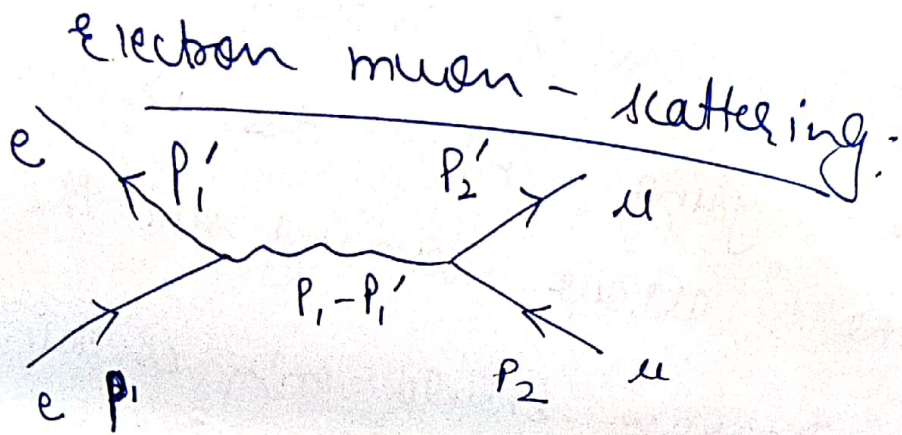 Electron muon - scattering:
e P₁' P₂' μ
P₁-P₁'
e p₁ P₂ μ